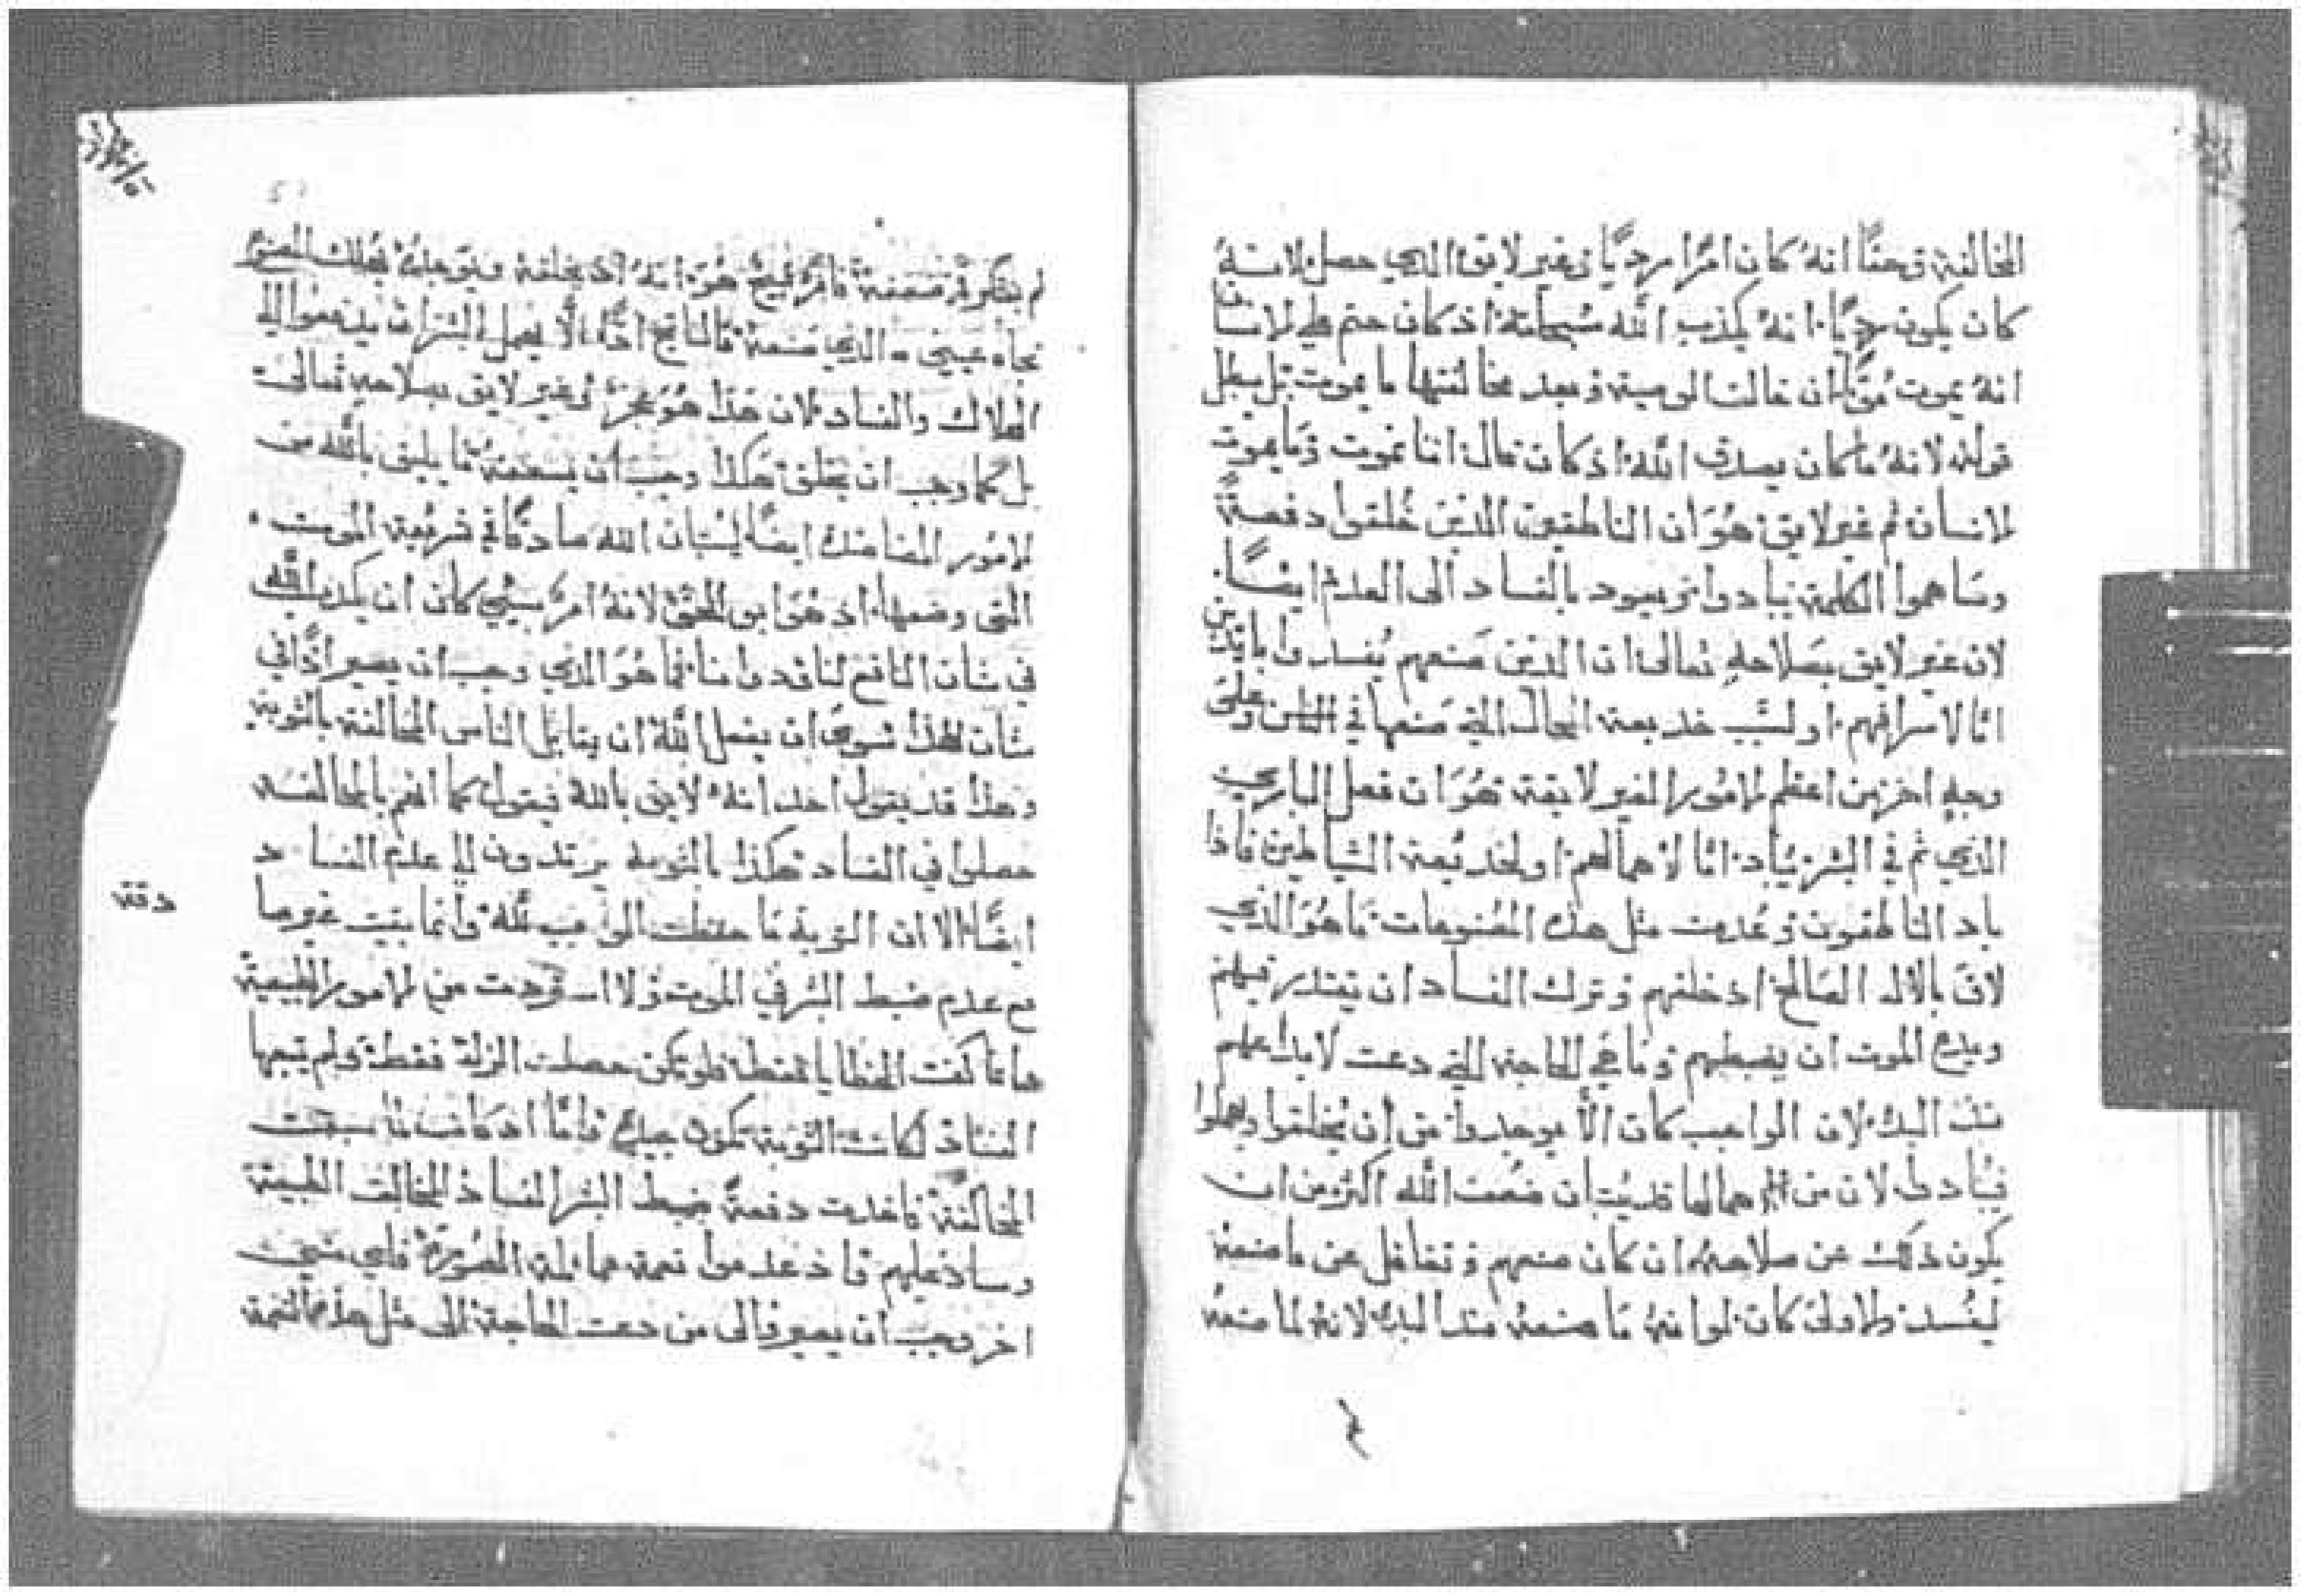 المخالفة وحقًا انهُ كان امرًا رديًا وغير لايق الذي حصل لانهُ
كان يكون رديًا انهُ يكذب الله سبحانهُ اذ كان حتم على الانسان
انهُ يموت موتًا ان خالف الوصية وبعد مخالفتها ما يموت بل يبطل
قوله لانهُ ما كان يصدق الله اذ كان قال اننا نموت وما يموت
الانسان ثم غير لايق هُوَ ان الناطقين الذين خُلقوا دفعةً
وساهموا الكلمة يبادوا ويعود بالفساد الى العدم ايضًا
لان غير لايق بصلاحهِ تعالى ان الذين صنعهم يُفسدوا بايدين
امّا لاسرافهم او لسبب خديعة المحال التي صنعها في الناس وعلى
وجهٍ اخر من اعظم الامُور الغير لايقة هُوَ ان فعل الباري
الذي تم في البشر يُباد امّا لاهمالهم او لخديعة الشياطين فاذا
باد الناطقون وعُدمت مثل هذه المصنوعات ما هُوَ الذي
لاق بالاله الصالح اذ خلقهم وترك الفساد ان يقتدر عليهم
ويدع الموت ان يضبطهم وما هي الحاجة التي دعت لابداعهم
منذ البدء لان الواجب كان الّا يوجدوا من ان يُخلقوا ويهملوا
فيُبادوا لان من اهمالها قد يُبان ضُعف الله اكثر من ان
يكون ذلك عن صلاحهُ ان كان صنعهم وتغافل عن ما صنعهُ
ليفسد والاولى كان لو انهُ ما صنعهُ منذ البدء لانهُ لما صنعهُ
لم يفتكر في ضعفهُ فامر قبيح هُوَ انهُ اذ يخلقهُ ويوجدهُ يهلك المصنوع
تجاه عينيّ الذي صنعهُ فالناتج اذًا الّا يهمل البشر ان يندفعوا الى
الهلاك والفساد لان هذا هُوَ عجز وغير لايق بصلاحهِ تعالى
بل كما وجب ان يخلق هكذا وجب ان يصنعهُ ما يليق بالله من
الامُور المضاهية ايضًا ليُبان الله صادقًا في شريعة الموت
التي وضعها اذ هُوَ ابو الحق لانهُ امر شنيع كان ان يكذب الله
في شان النافع لنا ودوامنا فما هُوَ الذي وجب ان يصير اذًا في
شان هذا سوى ان يفعل الله ان يقابل الناس المخالفة بالتوبة
وهذا قد يقول احد انهُ لايق بالله فيقول كما انهم بالمخالفة
حصلوا في الفساد هكذا بالتوبة يرتدون الى عدم الفساد
ايضًا الا ان التوبة ما حفظت الواجب لله وانما بقيت غيرها
دفة
مع عدم ضبط البشر في الموت ولا استردت من الامور الطبيعية
ها ما كفت الخطايا فقط فلو تكن حصلت الزلة فقط ولم يتبعها
الفساد لكانت التوبة تكون جيدة فامّا اذ كانت قد سبقت
المخالفة فاخذت دفعةً ضبط البشر الفساد المخالف الطبيعة
وساد عليهم واذ عدموا نعمة مماثلة الصُورة فاي شيء
اخر وجب ان يصير والى من دعت الحاجة الى مثل هذه النعمة